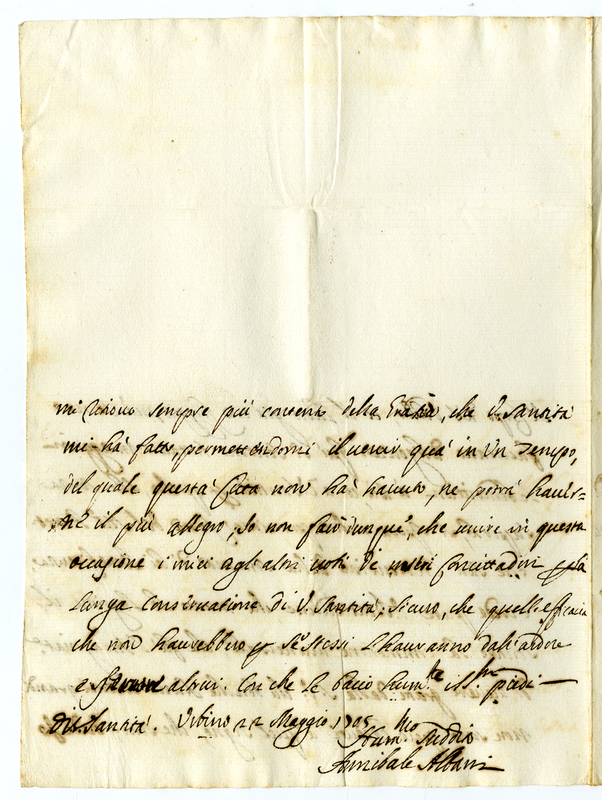 mi trovo sempre più contento della Grazia, che V. Santità
mi hà fatto, permettendomi il venir quà in un Tempo,
del quale questa Città non hà havuto, ne potrà haver=
ne il più allegro, Io non farò dunque, che unire in questa
occasione i miei agl'altri voti de nostri Concittadini p la
lunga conservatione di V. Santità, sicuro, che quell'efficacia
che non haurebbero p se stessi l'hauranno dall'ardore
e altrui. Con che le bacio hum.te il S.mi piedi
di V. Santità. Urbino 22 Maggio 1705
Hum.mo Suddito
Annibale Albani